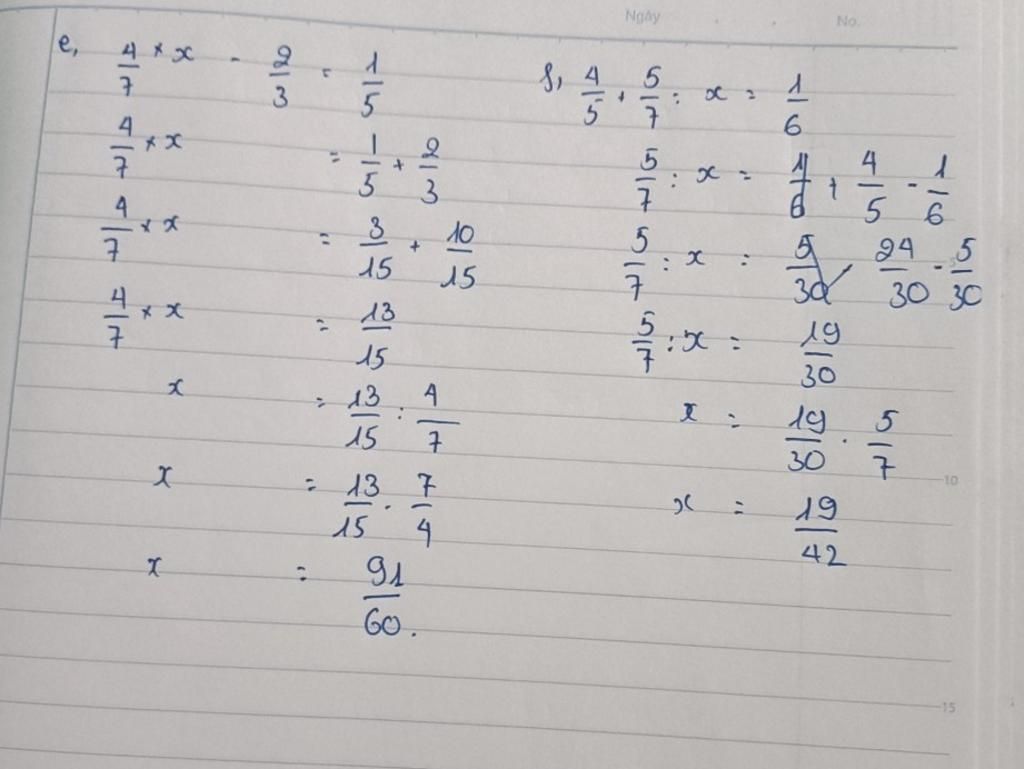 Ngày No.
e, 4/7 × x - 2/3 = 1/5
4/7 × x = 1/5 + 2/3
4/7 × x = 3/15 + 10/15
4/7 × x = 13/15
x = 13/15 : 4/7
x = 13/15 . 7/4
x = 91/60.
f, 4/5 + 5/7 : x = 1/6
5/7 : x = 4/5 - 1/6
5/7 : x = 24/30 - 5/30
5/7 : x = 19/30
x = 19/30 . 5/7
x = 19/42
10
15